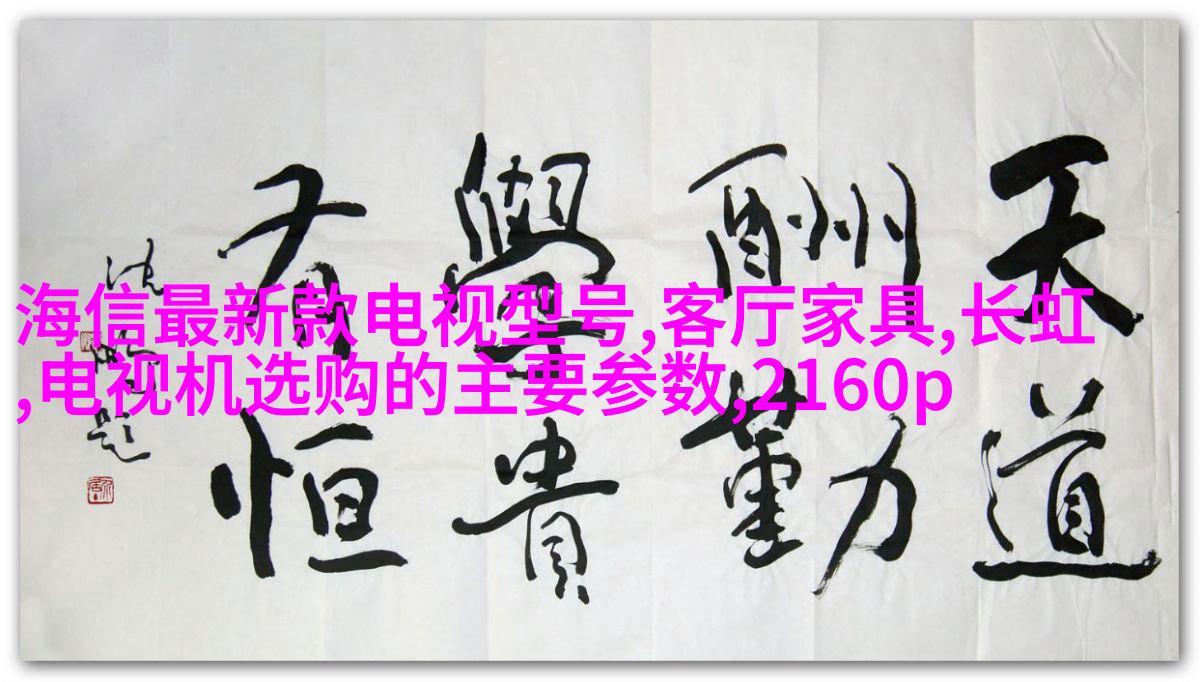 天道
酬勤
學貴
有恒
海信最新款电视型号,客厅家具,长虹
,电视机选购的主要参数,2160p